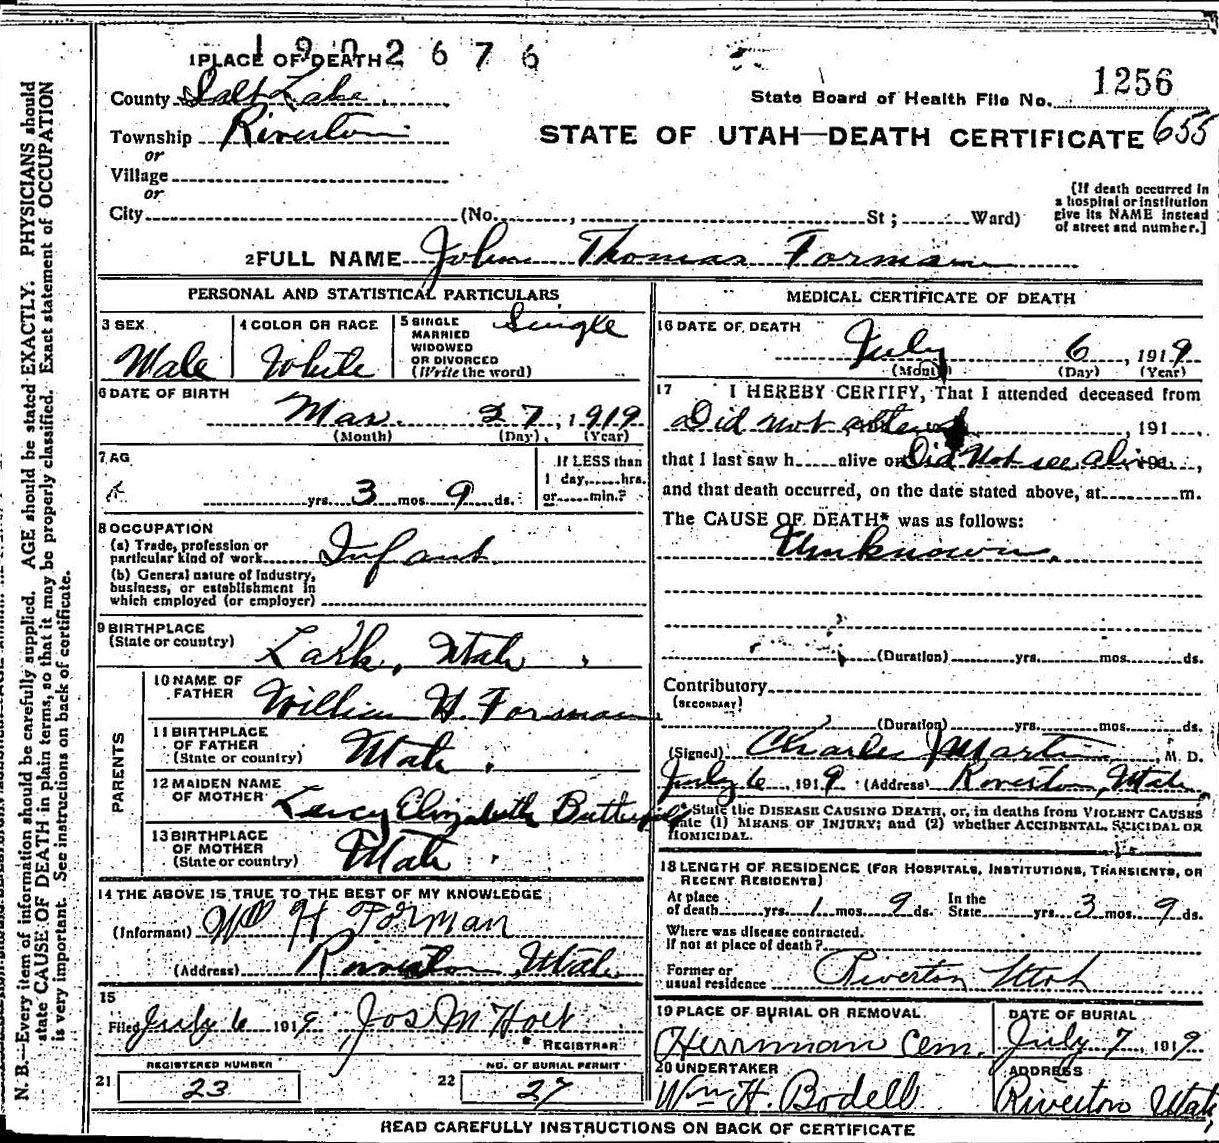 1902676
1 PLACE OF DEATH
County Salt Lake
State Board of Health File No. 1256
Township Riverton
STATE OF UTAH—DEATH CERTIFICATE 655
or
Village
or
City (No. , St ; Ward)
[If death occurred in
a hospital or institution
give its NAME instead
of street and number.]
2 FULL NAME John Thomas Forman
PERSONAL AND STATISTICAL PARTICULARS
3 SEX
Male
4 COLOR OR RACE
White
5 SINGLE
MARRIED
WIDOWED
OR DIVORCED
(Write the word)
Single
6 DATE OF BIRTH
Mar. 27, 1919
(Month) (Day), (Year)
7 AG
yrs. 3 mos. 9 ds.
If LESS than
1 day, hrs.
or min.?
8 OCCUPATION
(a) Trade, profession or
particular kind of work Infant
(b) General nature of Industry,
business, or establishment in
which employed (or employer)
9 BIRTHPLACE
(State or country) Lark, Utah
PARENTS
10 NAME OF
FATHER William H. Forman
11 BIRTHPLACE
OF FATHER
(State or country) Utah.
12 MAIDEN NAME
OF MOTHER Lucy Elizabeth Butterfield
13 BIRTHPLACE
OF MOTHER
(State or country) Utah.
14 THE ABOVE IS TRUE TO THE BEST OF MY KNOWLEDGE
(Informant) Wm H Forman
(Address) Riverton Utah
15
Filed July 6 1919 Jos M Holt
REGISTRAR
REGISTERED NUMBER
21 23
NO. OF BURIAL PERMIT
22 27
MEDICAL CERTIFICATE OF DEATH
16 DATE OF DEATH
July 6, 1919
(Month) (Day) (Year)
17 I HEREBY CERTIFY, That I attended deceased from
Did not attend , 191
that I last saw h alive on Did Not see alive 191 ,
and that death occurred, on the date stated above, at m.
The CAUSE OF DEATH* was as follows:
Unknown.
(Duration) yrs. mos. ds.
Contributory
(SECONDARY)
(Duration) yrs. mos. ds.
(Signed) Charles J Martin, M. D.
July 6 1919 (Address) Riverton, Utah
* State the DISEASE CAUSING DEATH, or, in deaths from VIOLENT CAUSES
state (1) MEANS OF INJURY; and (2) whether ACCIDENTAL, SUICIDAL OR
HOMICIDAL.
18 LENGTH OF RESIDENCE (FOR HOSPITALS, INSTITUTIONS, TRANSIENTS, OR
RECENT RESIDENTS)
At place
of death yrs. 1 mos. 9 ds.
In the
State yrs. 3 mos. 9 ds.
Where was disease contracted.
If not at place of death?
Former or
usual residence Riverton Utah
19 PLACE OF BURIAL OR REMOVAL
Herrman Cem.
DATE OF BURIAL
July 7, 1919
20 UNDERTAKER
Wm H. Bodell
ADDRESS
Riverton Utah
READ CAREFULLY INSTRUCTIONS ON BACK OF CERTIFICATE
N. B.—Every item of information should be carefully supplied. AGE should be stated EXACTLY. PHYSICIANS should
state CAUSE OF DEATH in plain terms, so that it may be properly classified. Exact statement of OCCUPATION
is very important. See instructions on back of certificate.